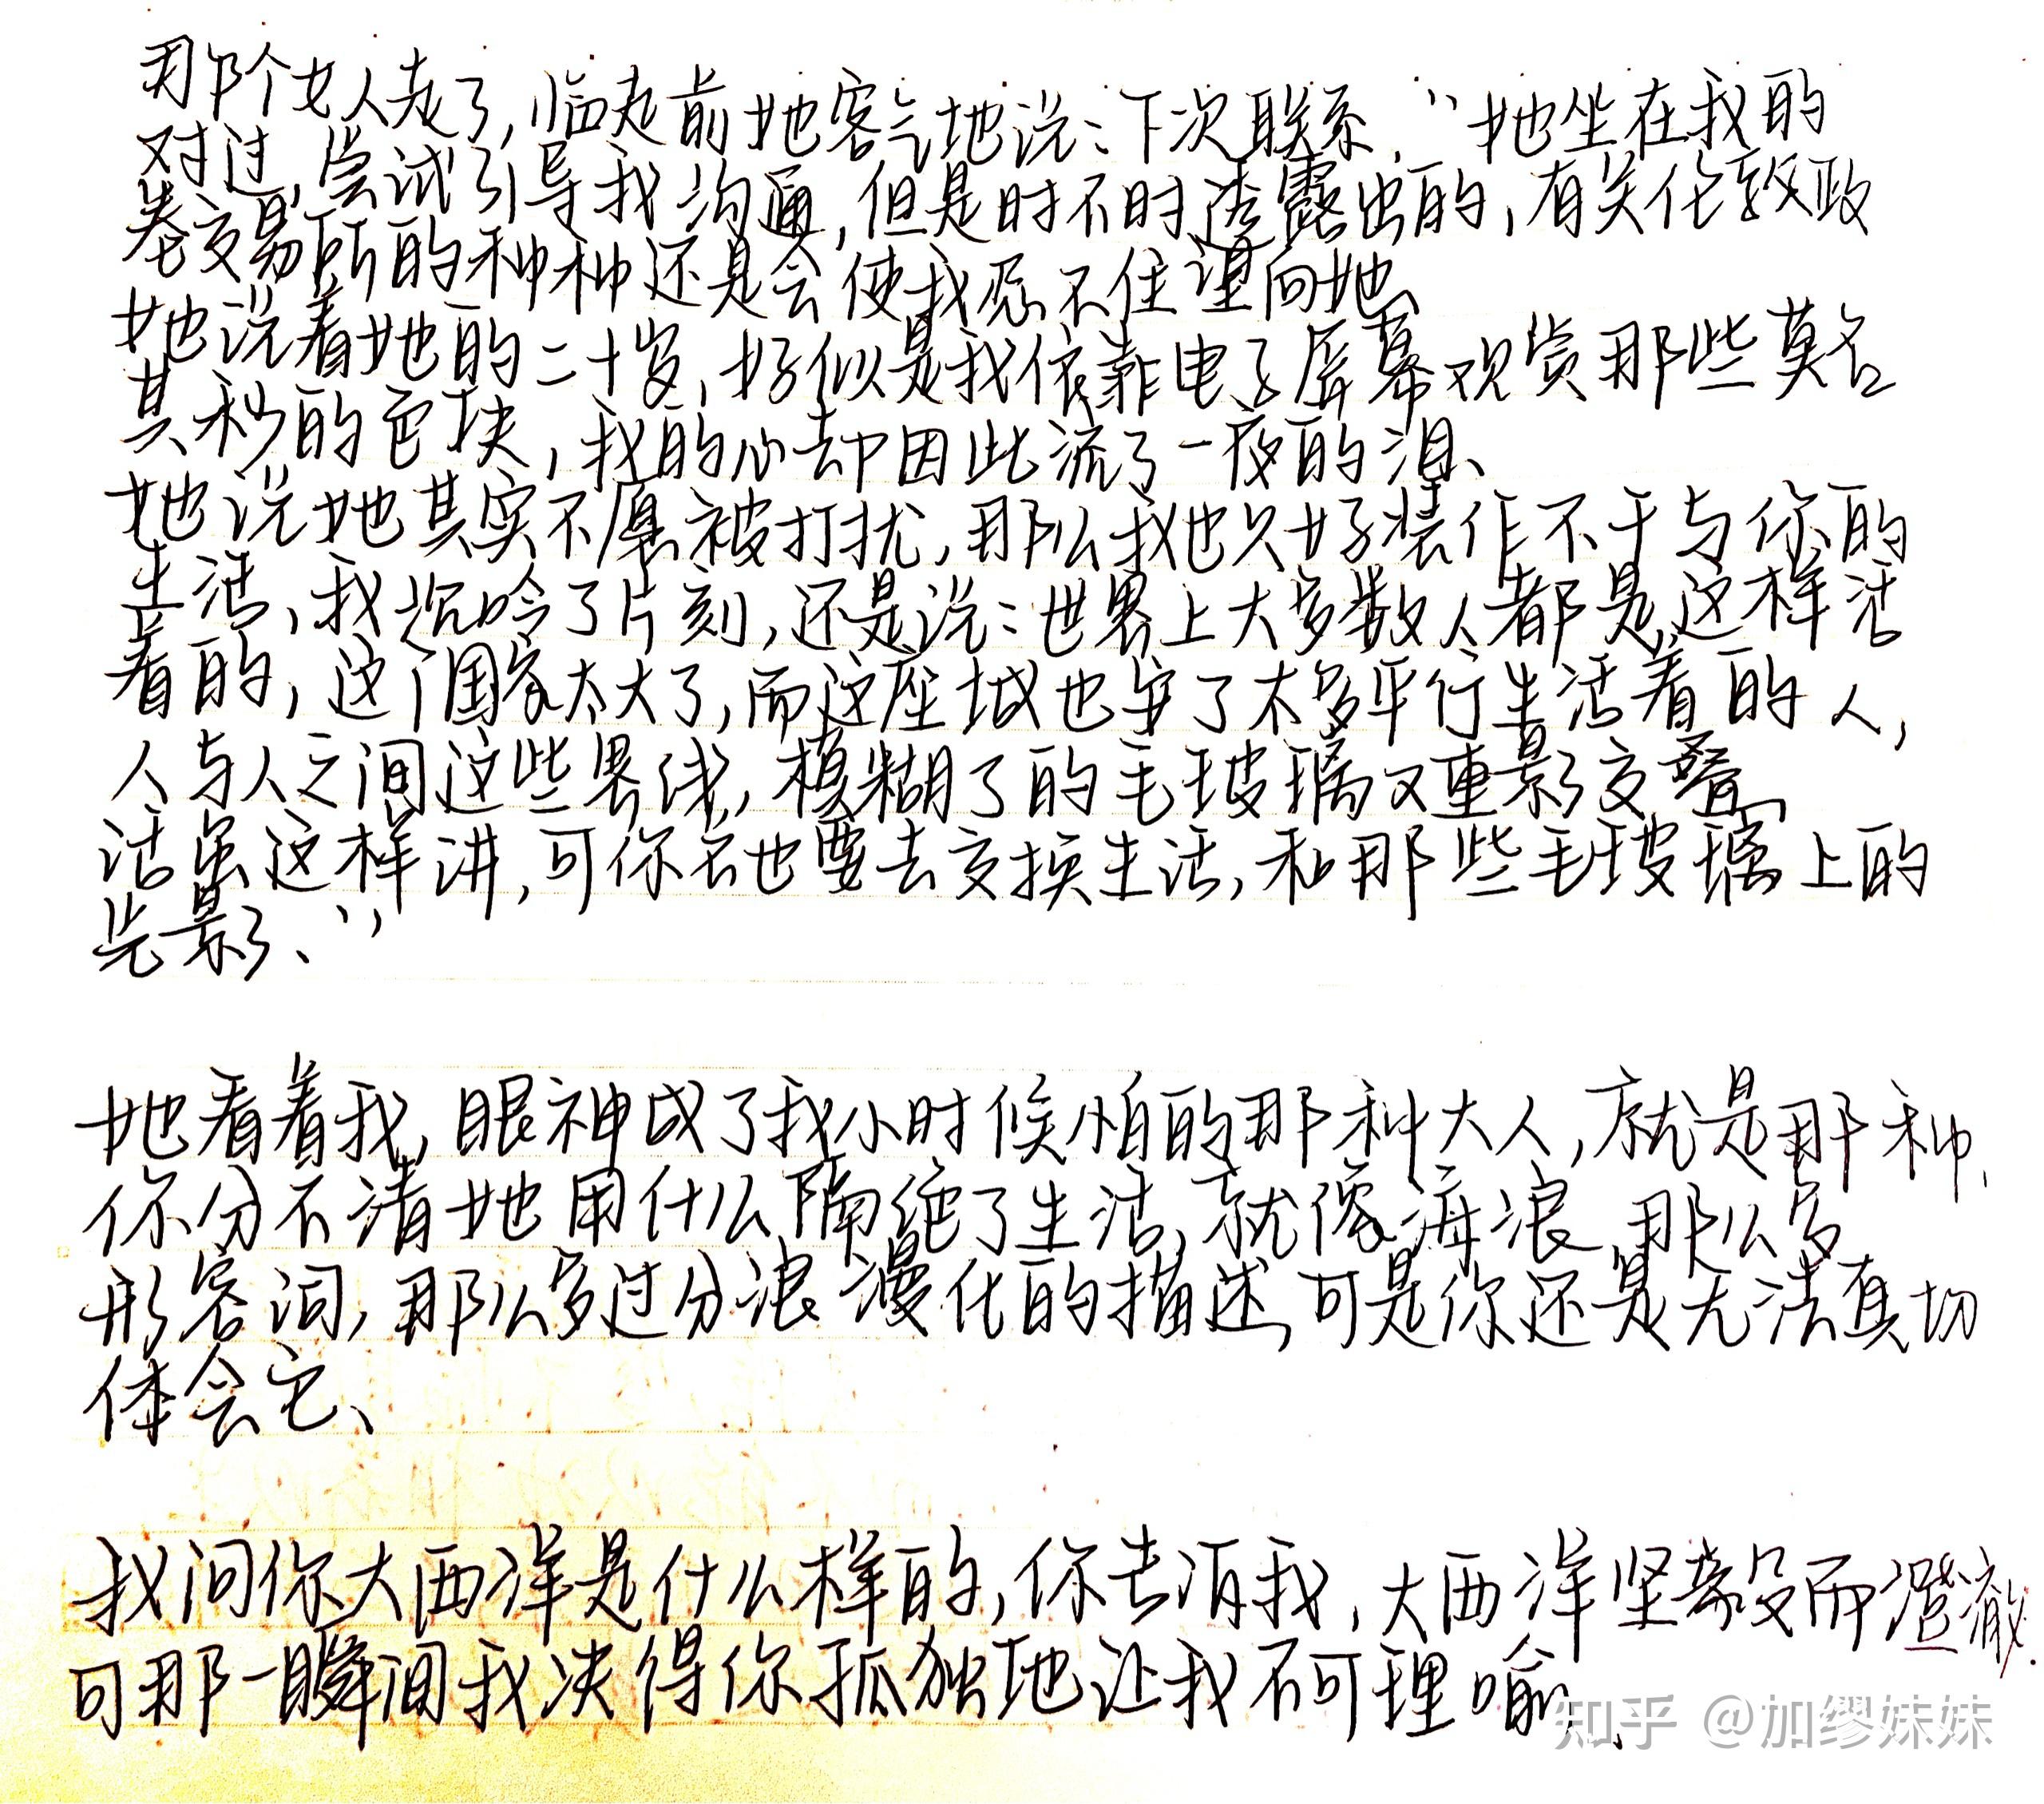 那个女人走了，临走前她客气地说：下次联系，“她坐在我的
对过，尝试引导我沟通，但是时不时透露出的，有关伦敦政
券交易所的种种还是会使我忍不住望向她、
她说着她的二十岁，好似是我依靠电子屏幕观赏那些莫名
其秒的色块，我的心却因此流了一夜的泪、
她说她其实不愿被打扰，那么我也只好装作不干与你的
生活，我沉吟了片刻，还是说：世界上大多数人都是这样活
着的，这个国家太大了，而这座城也牢了太多平行生活着的人，
人与人之间这些界线，模糊了的毛玻璃又重影交叠，
话虽这样讲，可你总也要去交换生活，和那些毛玻璃上的
光影、”
她看着我，眼神成了我小时候怕的那种大人，就是那种、
你分不清她用什么隔绝了生活，就像海浪，那么多
形容词，那么多过分浪漫化的描述，可是你还是无法真切
体会它、
我问你大西洋是什么样的，你告诉我，大西洋坚毅而澄澈.
可那一瞬间我决得你孤独地让我不可理喻.
知乎 @加缪妹妹